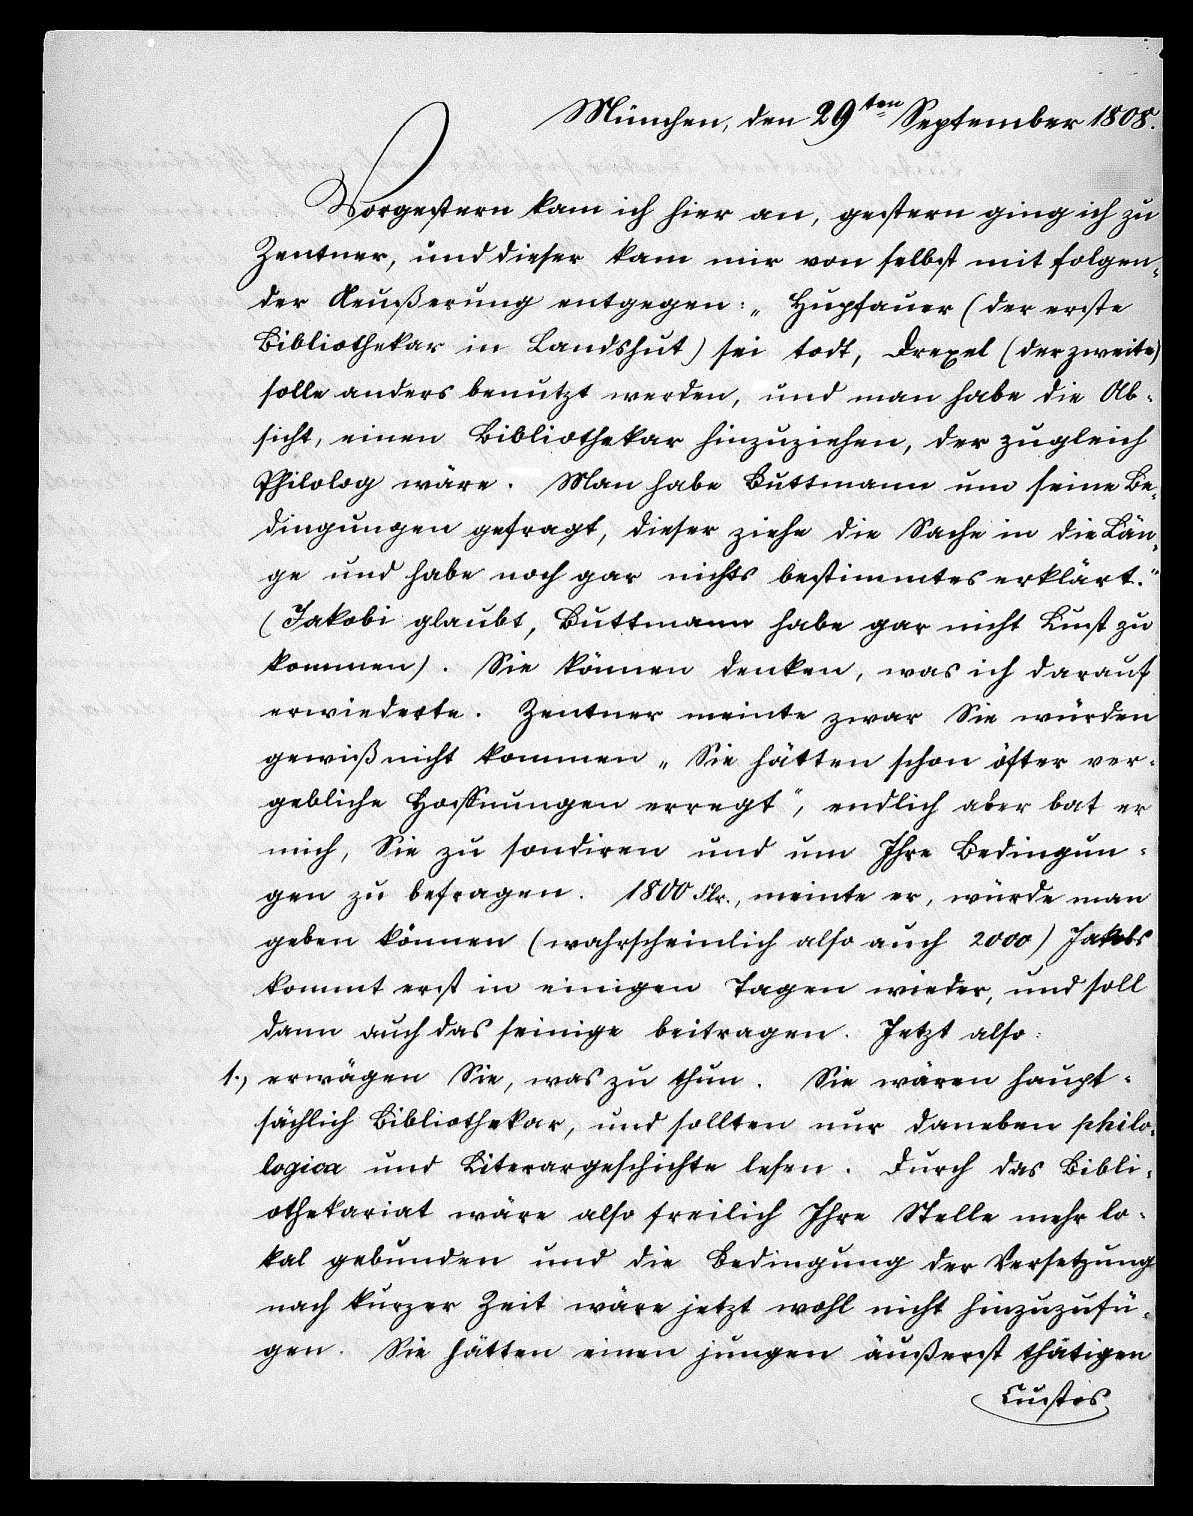 München, den 29ten September 1808.
Vorgestern kam ich hier an, gestern ging ich zu
Zentner, und dieser kam mir von selbst mit folgen-
der Aeußerung entgegen: „Hupfauer (der erste
Bibliothekar in Landshut) sei todt, Drexel (der zweite)
solle anders benutzt werden, und man habe die Ab-
sicht, einen Bibliothekar hinzuziehen, der zugleich
Philolog wäre. Man habe Buttmann um seine Be-
dingungen gefragt, dieser ziehe die Sache in die Län-
ge und habe noch gar nichts bestimmtes erklärt."
(Jakobi glaubt, Buttmann habe gar nicht Lust zu
kommen). Sie können denken, was ich darauf
erwiederte. Zentner meinte zwar Sie würden
gewiß nicht kommen „Sie hätten schon öfter ver-
gebliche Hoffnungen erregt", endlich aber bat er
mich, Sie zu sondiren und um Ihre Bedingun-
gen zu befragen. 1800 Flr., meinte er, würde man
geben können (wahrscheinlich also auch 2000) Jakobs
kommt erst in einigen Tagen wieder, und soll
dann auch das seinige beitragen. Jetzt also:
1., erwägen Sie, was zu thun. Sie wären haupt-
sächlich Bibliothekar, und sollten nur daneben philo-
logica und Literargeschichte lesen. Durch das Bibli-
othekariat wäre also freilich Ihre Stelle mehr lo-
kal gebunden und die Bedingung der Versetzung
nach kurzer Zeit wäre jetzt wohl nicht hinzuzufü-
gen. Sie hätten einen jungen äußerst thätigen
Custos